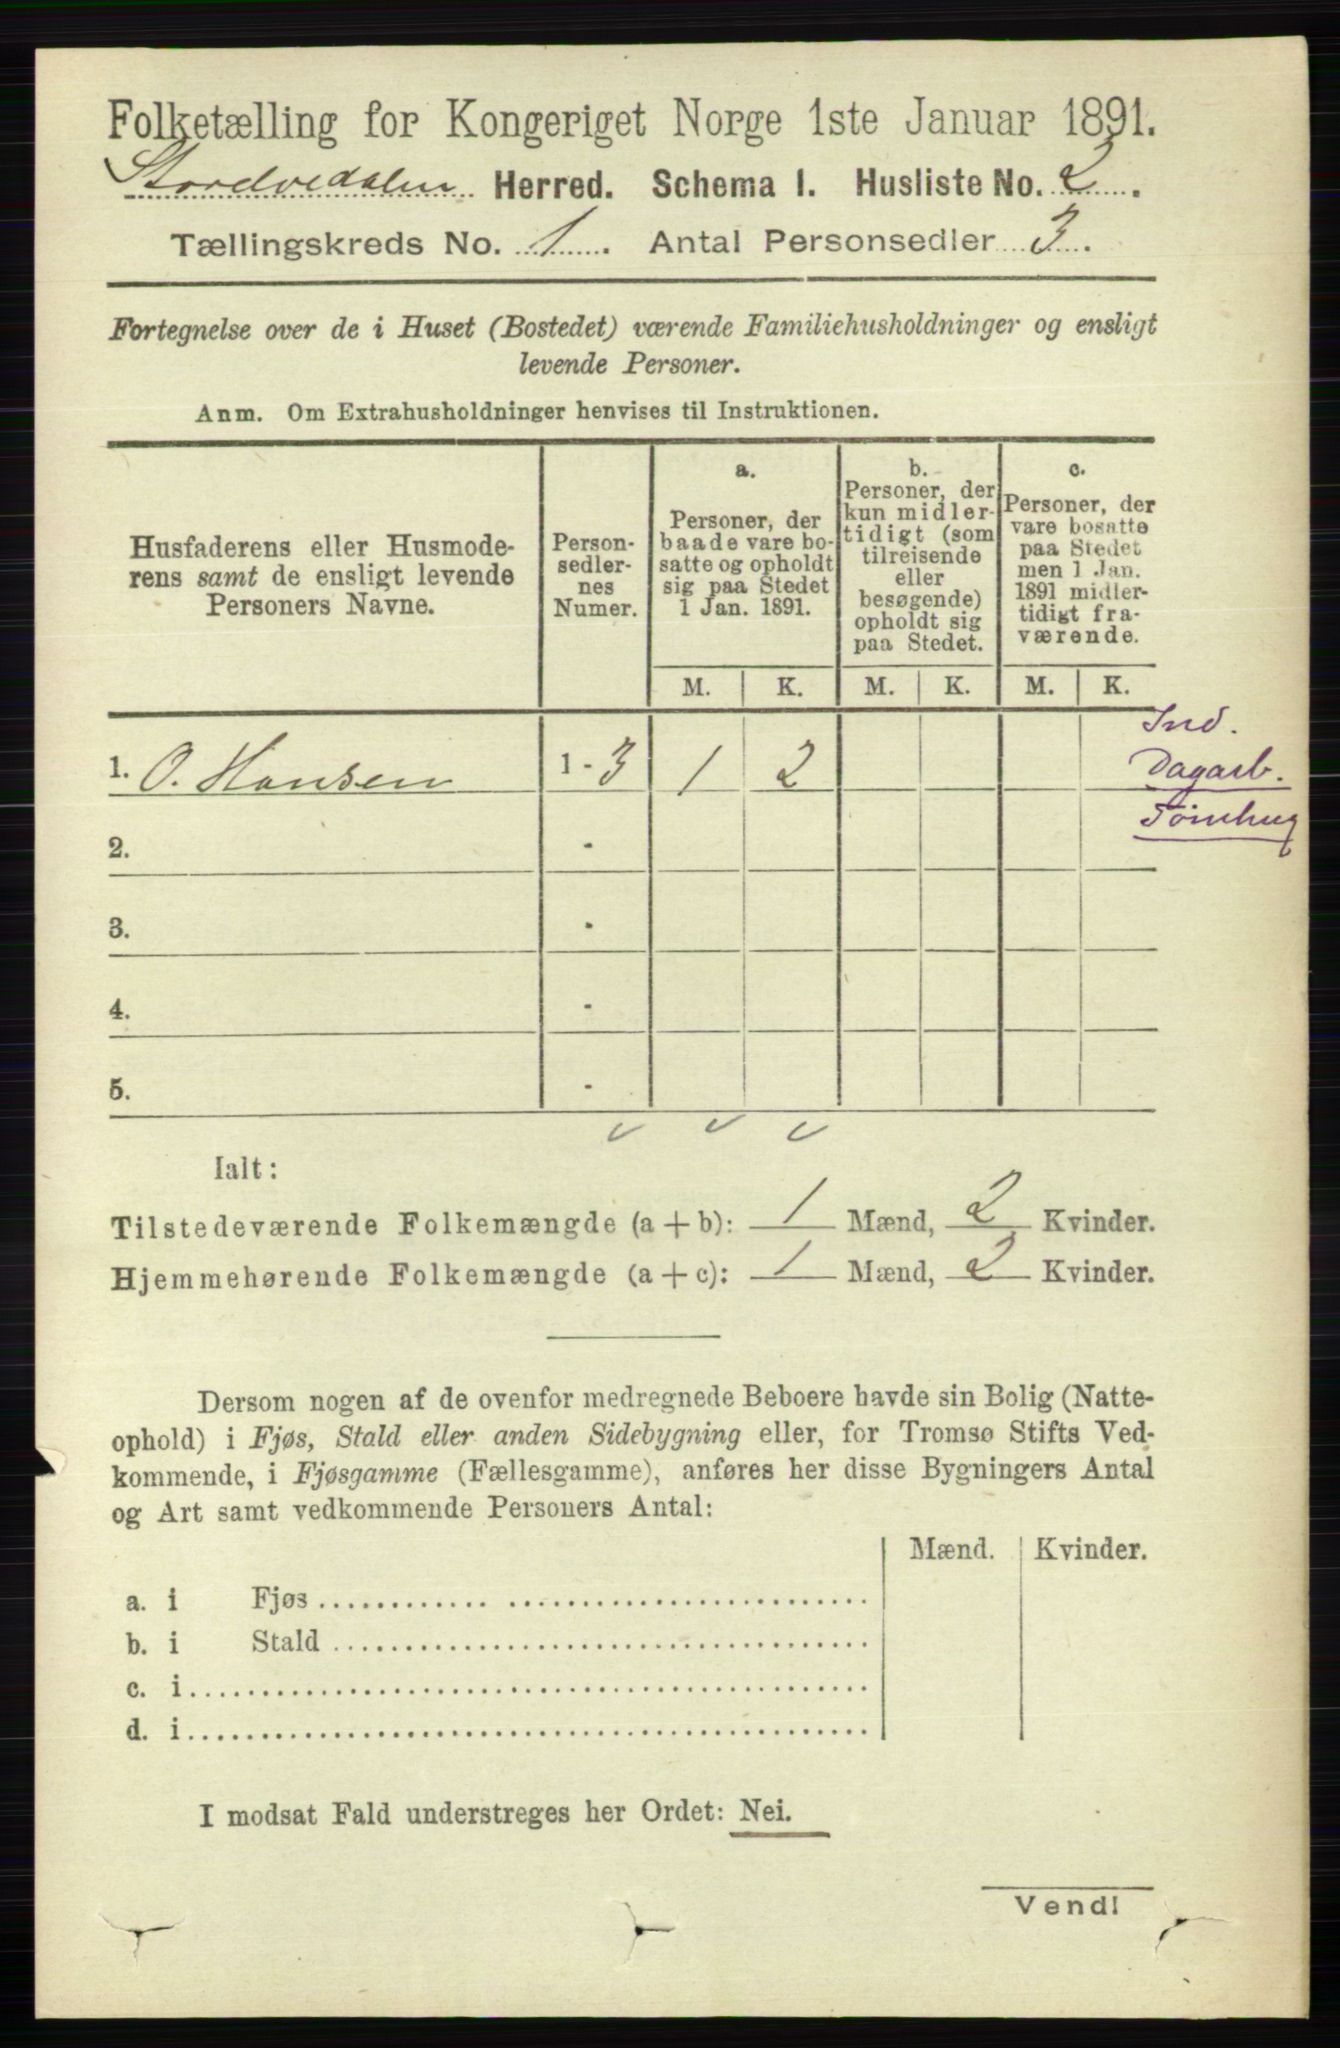 Folketælling for Kongeriget Norge 1ste Januar 1891.
Storelvedalen Herred. Schema I. Husliste No. 2.
Tællingskreds No. 1. Antal Personsedler 3.
Fortegnelse over de i Huset (Bostedet) værende Familiehusholdninger og ensligt
levende Personer.
Anm. Om Extrahusholdninger henvises til Instruktionen.
Husfaderens eller Husmode-
rens samt de ensligt levende
Personers Navne.
Person-
sedler-
nes
Numer.
a.
Personer, der
baade vare bo-
satte og opholdt
sig paa Stedet
1 Jan. 1891.
b.
Personer, der
kun midler-
tidigt (som
tilreisende
eller
besøgende)
opholdt sig
paa Stedet.
c.
Personer, der
vare bosatte
paa Stedet
men 1 Jan.
1891 midler-
tidigt fra-
værende.
M. K. M. K. M. K.
Ind.
1. O. Hansen 1 - 3 1 2
Dagarb.
2. -
3. -
4. -
5. -
Ialt:
Tilstedeværende Folkemængde (a + b): 1 Mænd, 2 Kvinder.
Hjemmehørende Folkemængde (a + c): 1 Mænd, 2 Kvinder.
Dersom nogen af de ovenfor medregnede Beboere havde sin Bolig (Natte-
ophold) i Fjøs, Stald eller anden Sidebygning eller, for Tromsø Stifts Ved-
kommende, i Fjøsgamme (Fællesgamme), anføres her disse Bygningers Antal
og Art samt vedkommende Personers Antal:
Mænd. Kvinder.
a. i Fjøs
b. i Stald
c. i
d. i
I modsat Fald understreges her Ordet: Nei.
Vend!